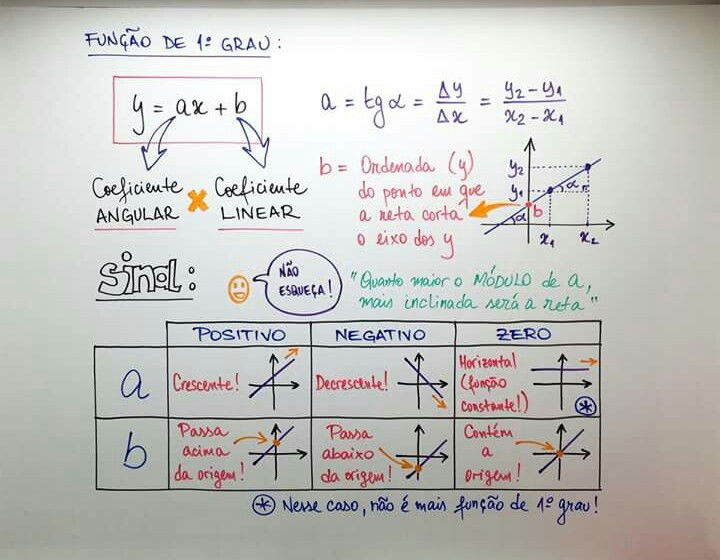 FUNÇÃO DE 1º GRAU:
y = ax + b
a = tg α = Δy/Δx = y₂ - y₁ / x₂ - x₁
Coeficiente
ANGULAR
Coeficiente
LINEAR
b = Ordenada (y)
do ponto em que
a reta corta
o eixo dos y
y₂
y₁
α
b
α
x₁
x₂
Sinal:
NÃO
ESQUEÇA!
"Quanto maior o MÓDULO de a,
mais inclinada será a reta"
POSITIVO NEGATIVO ZERO
a
Crescente!
Decrescente!
Horizontal
(função
constante!)
*
b
Passa
acima
da origem!
Passa
abaixo
da origem!
Contém
a
origem!
* Nesse caso, não é mais função de 1º grau!